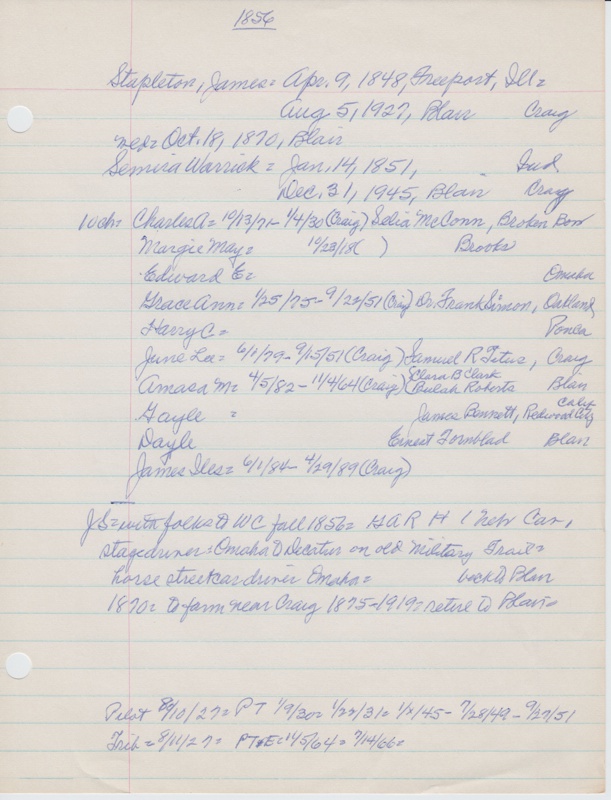 1856
Stapleton, James = Apr. 9, 1848, Freeport, Ill =
Aug 5, 1927, Blair Craig
med = Oct. 18, 1870, Blair
Semira Warrick = Jan. 14, 1851, Ind
Dec. 31, 1945, Blair Craig
10ch = Charles A = 10/13/71 - 1/4/30 (Craig) Selia McConn, Broken Bow
Margie May = 10/23/18 ( ) Brooks
Edward E = Omaha
Grace Ann = 1/25/75 - 9/22/51 (Craig) Dr. Frank Simon, Oakland
Harry C = Ponca
June Lee = 6/1/79 - 9/15/51 (Craig) Samuel R Titus, Craig
Amasa M = 4/5/82 - 11/4/64 (Craig) Clara B Clark
Beulah Roberts Blair
Gayle = James Bennett, Redwood City Calif
Dayle Ernest Fornblad Blair
James Iles = 6/1/84 - 4/29/89 (Craig)
JS = with folks to WC fall 1856 = GAR H 1 Nebr Cav,
stagedriver = Omaha to Decatur on old Military Trail =
horse streetcar driver Omaha = back to Blair
1870 = to farm near Craig 1875-1919 = retire to Blair =
Pilot 8/10/27 = PT 1/9/30 = 1/22/31 = 1/8/45 - 7/28/49 - 9/27/51
Trib = 8/11/27 = PT&E = 11/5/64 = 7/14/66 =